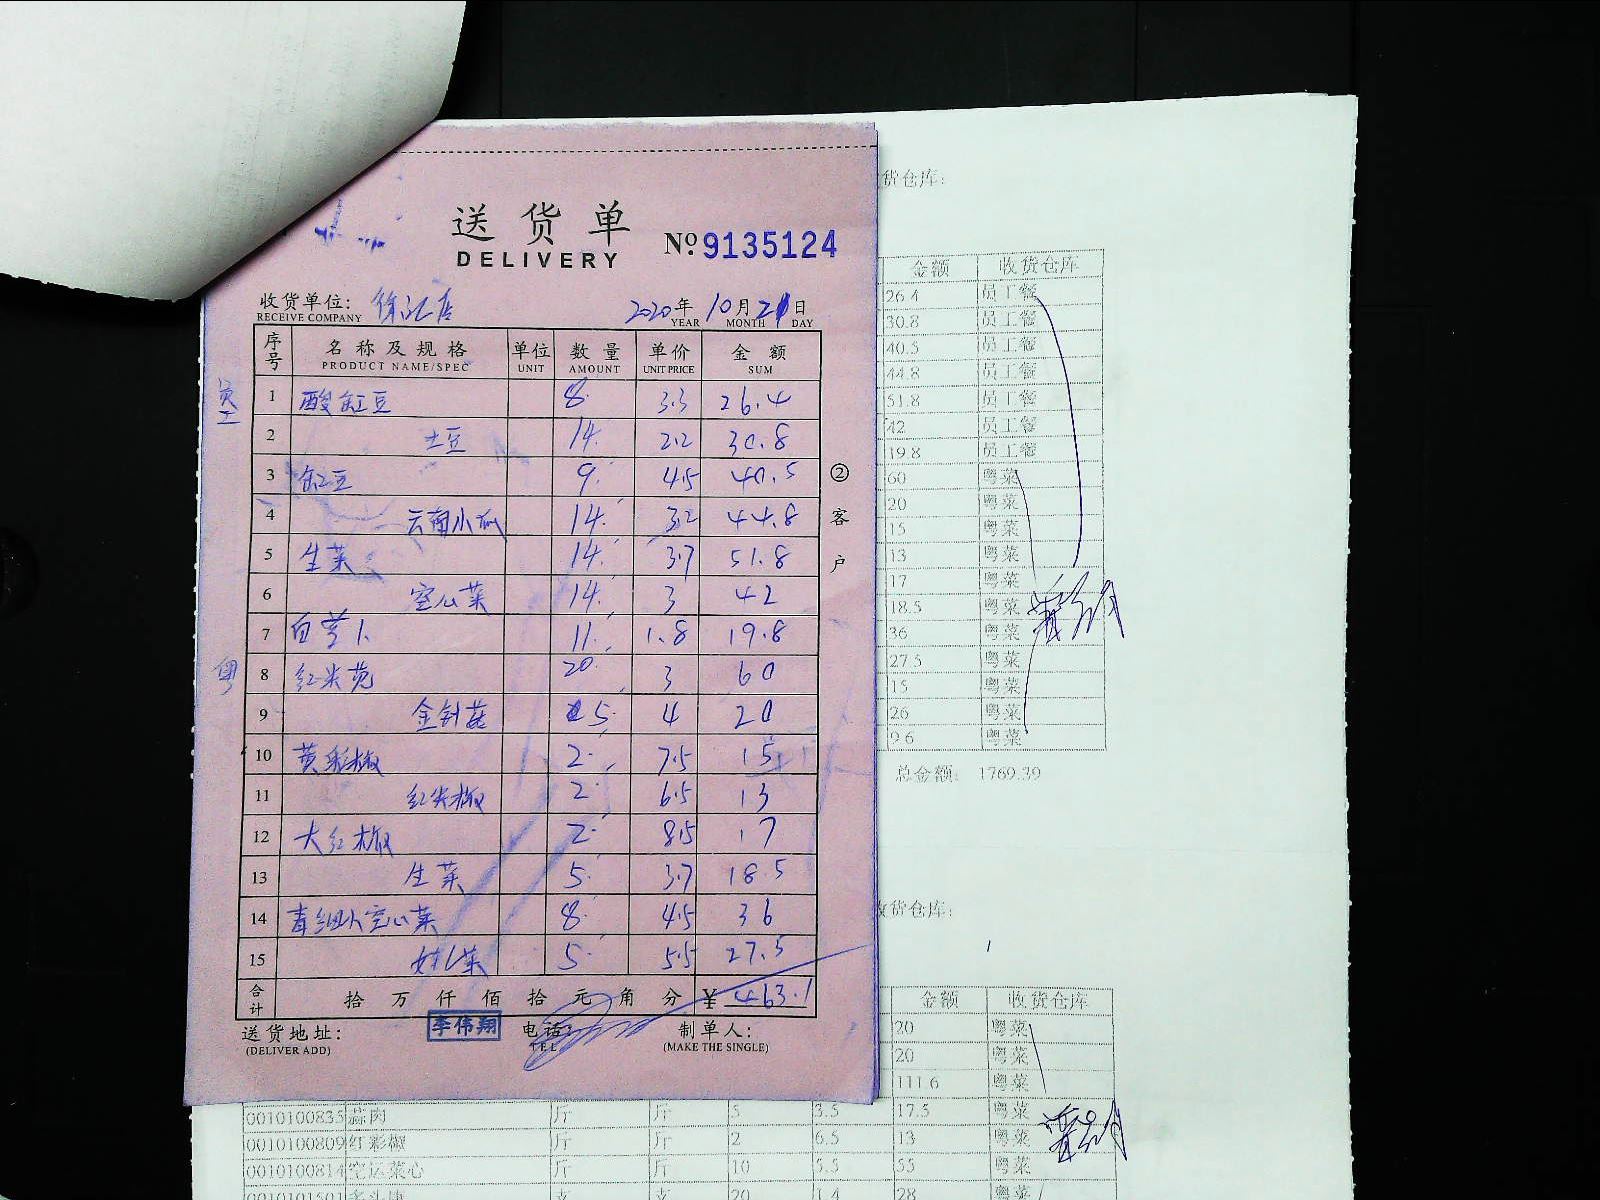 送货单
DELIVERY
№ 9135124
收货单位: 徐汇店
RECEIVE COMPANY
2020年10月21日
YEAR MONTH DAY
序号 名称及规格 单位 数量 单价 金额
PRODUCT NAME/SPEC UNIT AMOUNT UNIT PRICE SUM
员工
1 酸缸豆 8 3.3 26.4
2 土豆 14 2.2 30.8
3 缸豆 9 4.5 40.5
4 云南小瓜 14 3.2 44.8
5 生菜 14 3.7 51.8
6 空心菜 14 3 42
7 白萝卜 11 1.8 19.8
粤
8 红米苋 20 3 60
9 金针菇 5 4 20
10 黄彩椒 2 7.5 15
11 红尖椒 2 6.5 13
12 大红椒 2 8.5 17
13 生菜 5 3.7 18.5
14 青细小空心菜 8 4.5 36
15 娃菜 5 5.5 27.5
合计 拾 万 仟 佰 拾 元 角 分 ¥ 463.1
②客户
送货地址:
(DELIVER ADD)
李伟翔
电话:
TEL
制单人:
(MAKE THE SINGLE)
货仓库:
金额 收货仓库
26.4 员工餐
30.8 员工餐
40.5 员工餐
44.8 员工餐
51.8 员工餐
42 员工餐
19.8 员工餐
60 粤菜
20 粤菜
15 粤菜
13 粤菜
17 粤菜
18.5 粤菜
36 粤菜
27.5 粤菜
15 粤菜
26 粤菜
9.6 粤菜
总金额: 1769.39
收货仓库:
金额 收货仓库
20 粤菜
20 粤菜
111.6 粤菜
0010100835 蒜肉 斤 斤 5 3.5 17.5 粤菜
0010100809 红彩椒 斤 斤 2 6.5 13 粤菜
0010100814 空运菜心 斤 斤 10 5.5 55 粤菜
0010101501 支 支 20 1.4 28 粤菜